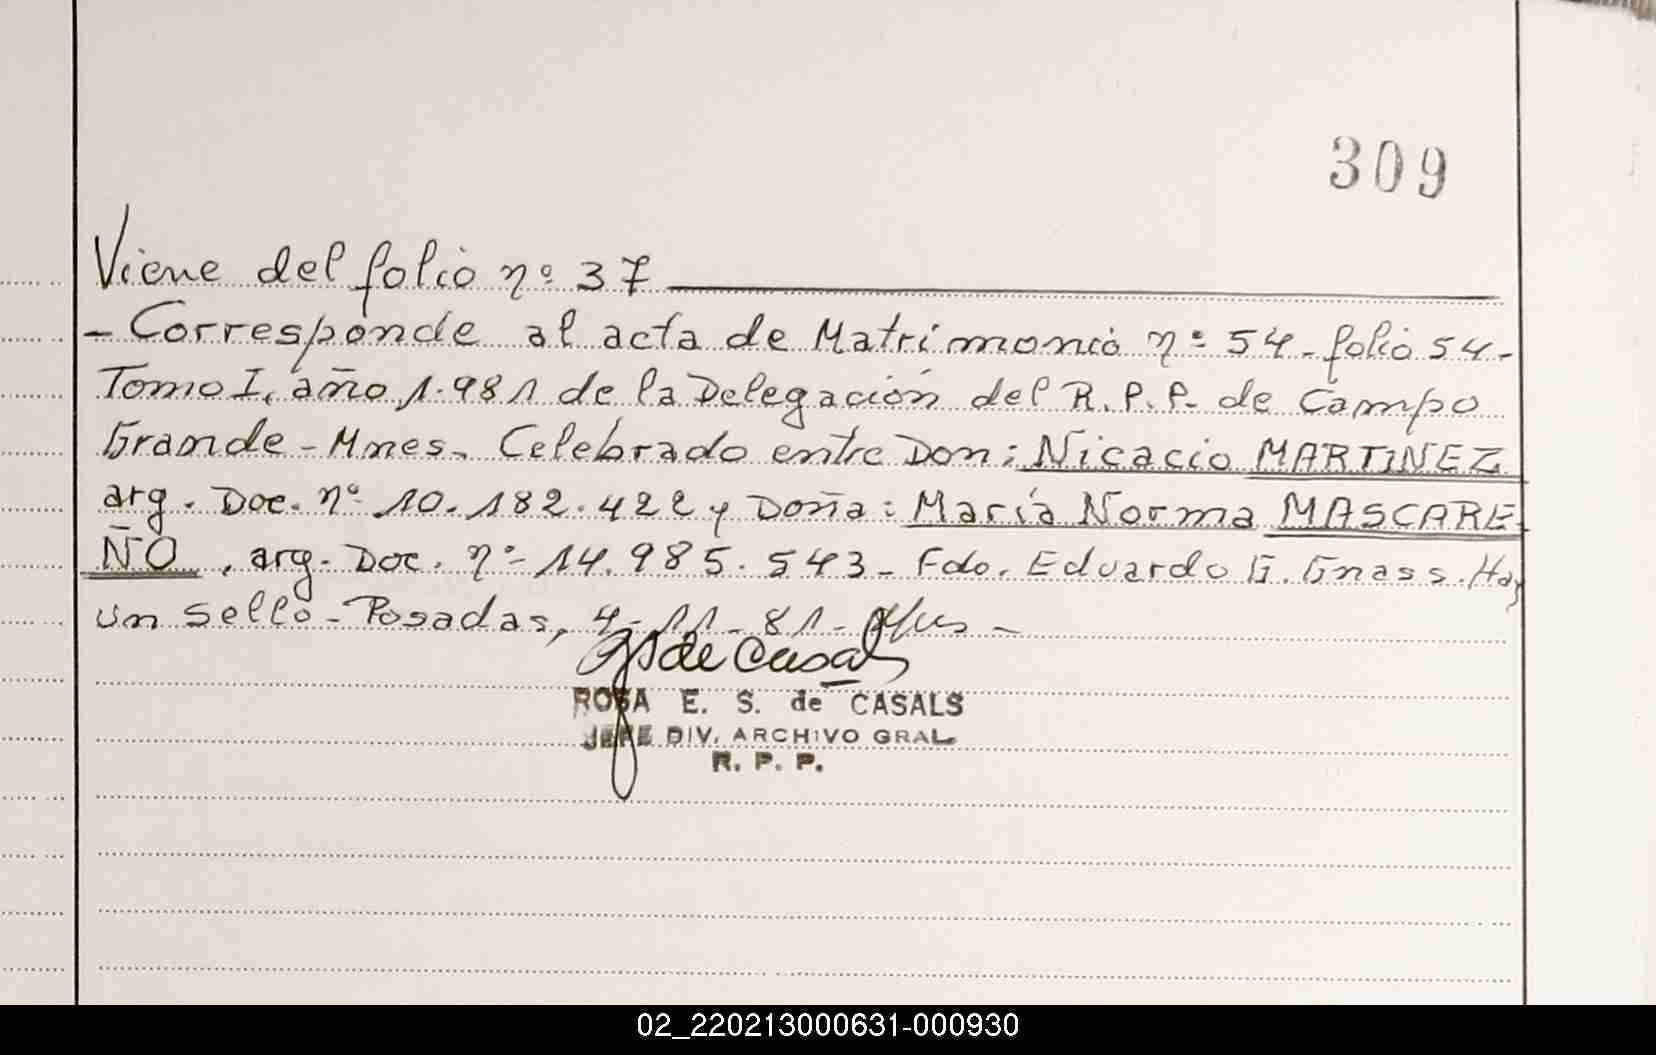 309
Viene del folio nº 37
- Corresponde al acta de Matrimonio nº 54 - folio 54 -
Tomo I, año 1.981 de la Delegación del R.P.P. de Campo
Grande - Mnes. Celebrado entre Don: Nicacio MARTINEZ
arg. Doc. nº 10.182.422 y Doña: María Norma MASCARE
ÑO, arg. Doc. nº 14.985.543 - Fdo. Eduardo G. Gnass. Hay
un sello - Posadas, 4-11-81 -
de Casals
ROSA E. S. de CASALS
JEFE DIV. ARCHIVO GRAL.
R. P. P.
02_220213000631-000930